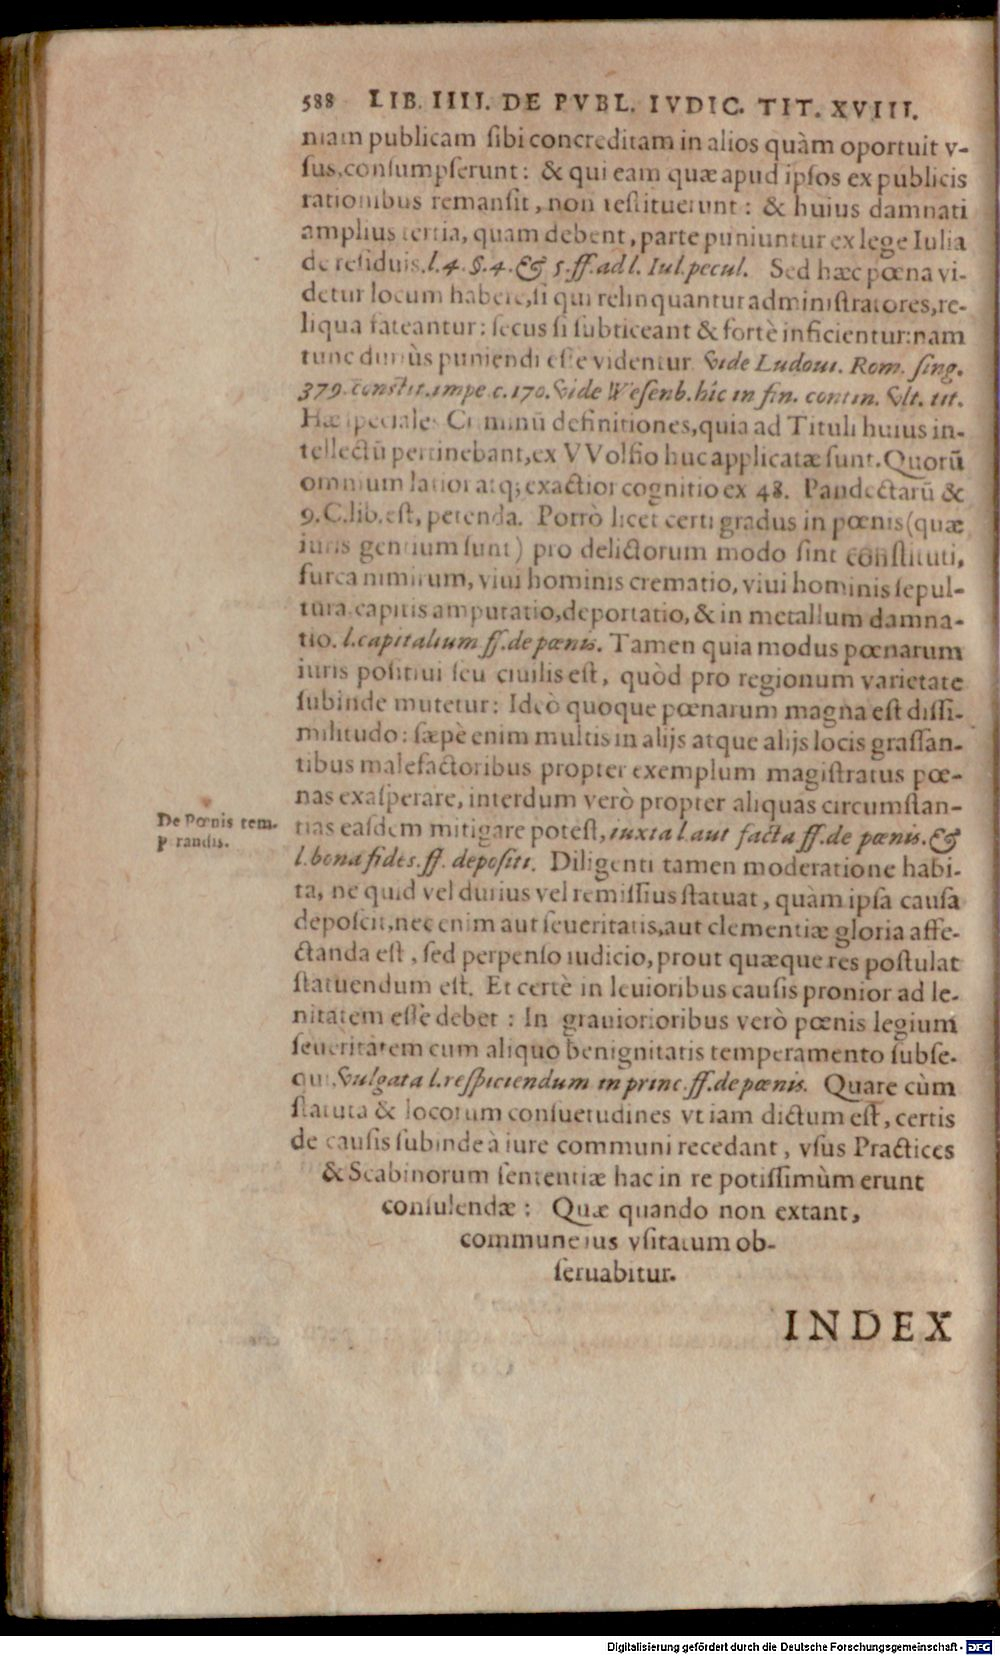 588 LIB. IIII. DE PVBL. IVDIC. TIT. XVIII.
niam publicam sibi concreditam in alios quàm oportuit v-
sus, consumpserunt: & qui eam quæ apud ipsos ex publicis
rationibus remansit, non restituerunt: & huius damnati
amplius tertia, quam debent, parte puniuntur ex lege Iulia
de residuis. l. 4. §. 4. & 5. ff. ad l. Iul. pecul. Sed hæc pœna vi-
detur locum habere, si qui relinquantur administratores, re-
liqua fateantur: secus si subticeant & fortè inficientur: nam
tunc duriùs puniendi esse videntur. Vide Ludoui. Rom. sing.
379. constit. impe. c. 170. Vide Wesenb. hîc in fin. contin. Vlt. tit.
Hæ speciales Criminū definitiones, quia ad Tituli huius in-
tellectū pertinebant, ex VVolfio huc applicatæ sunt. Quorū
omnium latior atq; exactior cognitio ex 48. Pandectarū &
9. C. lib. est, petenda. Porrò licet certi gradus in pœnis (quæ
iuris gentium sunt) pro delictorum modo sint constituti,
furca nimirum, viui hominis crematio, viui hominis sepul-
tura, capitis amputatio, deportatio, & in metallum damna-
tio. l. capitalium ff. de pœnis. Tamen quia modus pœnarum
iuris positiui seu ciuilis est, quòd pro regionum varietate
subinde mutetur: Ideò quoque pœnarum magna est dissi-
militudo: sæpè enim multis in alijs atque alijs locis grassan-
tibus malefactoribus propter exemplum magistratus pœ-
nas exasperare, interdum verò propter aliquas circumstan-
De Pœnis tem-
p randis.
tias easdem mitigare potest, iuxta l. aut facta ff. de pœnis. &
l. bona fides. ff. depositi. Diligenti tamen moderatione habi-
ta, ne quid vel durius vel remissius statuat, quàm ipsa causa
deposcit, nec enim aut seueritatis, aut clementiæ gloria affe-
ctanda est, sed perpenso iudicio, prout quæque res postulat
statuendum est. Et certè in leuioribus causis pronior ad le-
nitatem esse debet: In grauiorioribus verò pœnis legium
seueritatem cum aliquo benignitatis temperamento subse-
qui. Vulgata l. respiciendum in princ. ff. de pœnis. Quare cùm
statuta & locorum consuetudines vt iam dictum est, certis
de causis subinde à iure communi recedant, vsus Practices
& Scabinorum sententiæ hac in re potissimùm erunt
consulendæ: Quæ quando non extant,
commune ius vsitatum ob-
seruabitur.
INDEX
Digitalisierung gefördert durch die Deutsche Forschungsgemeinschaft - DFG